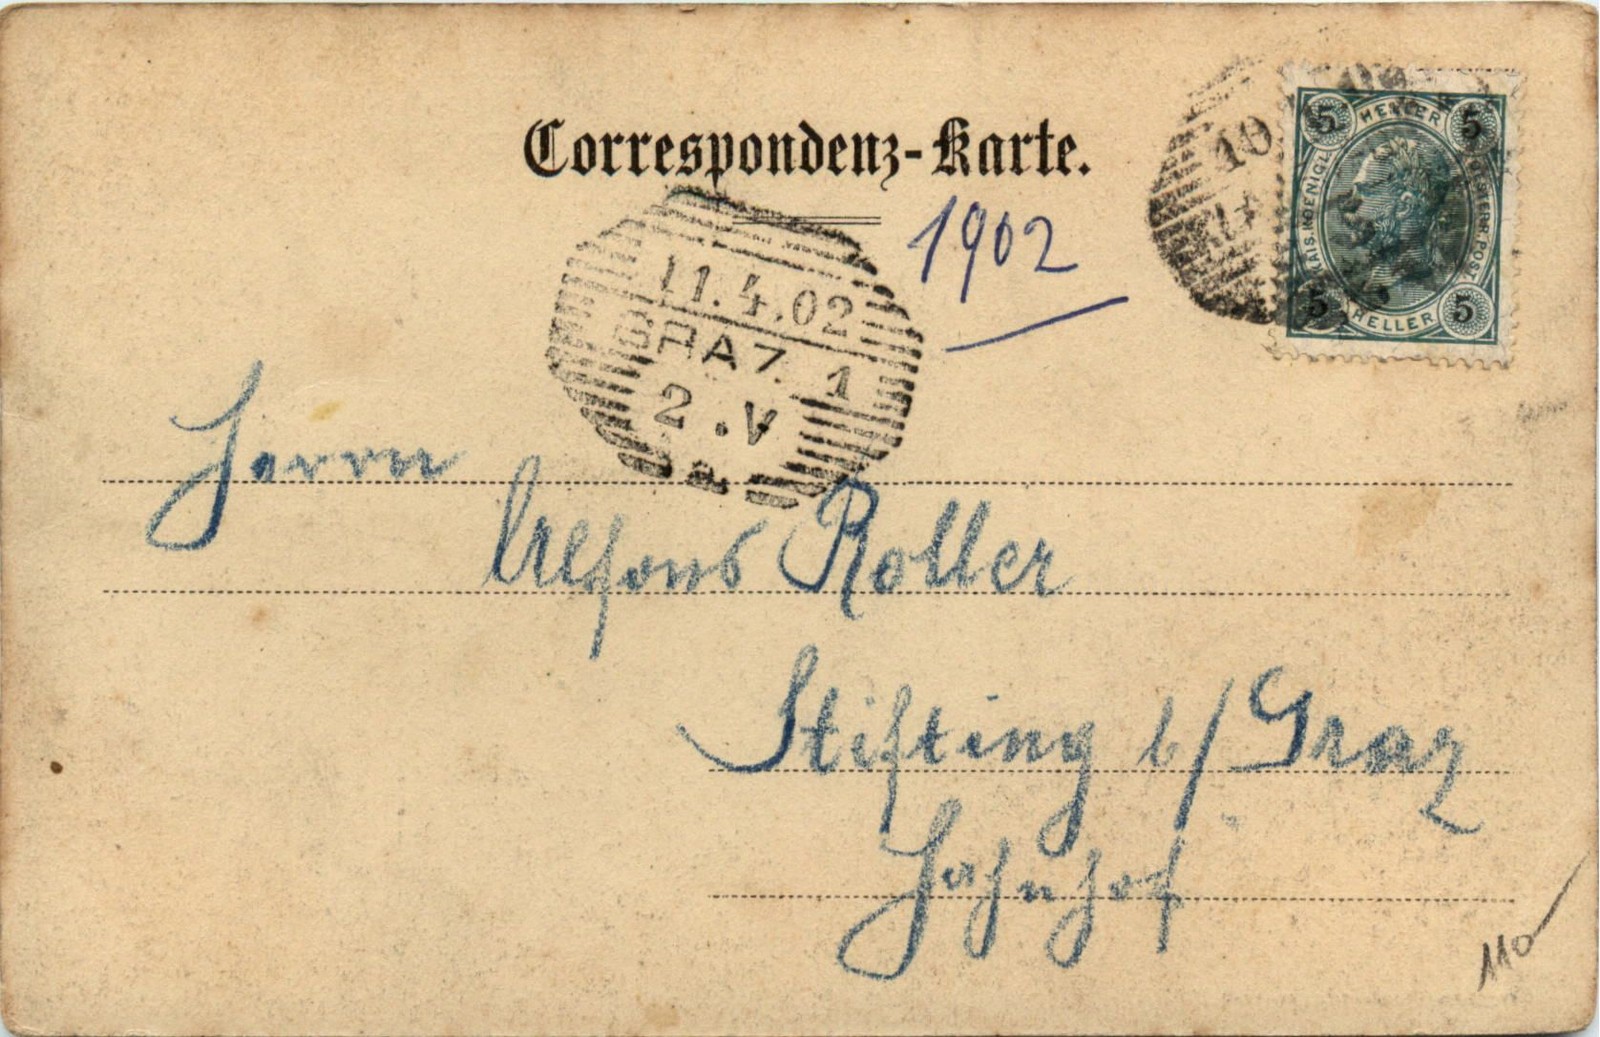 Correspondenz-Karte.
1902
11.4.02
GRAZ 1
2.V
a
10
5 HELLER 5
KAIS. KOENIGL. OESTERR. POST
5 HELLER 5
Herrn
Alfons Roller
Stifting b/ Graz
Hahnhof
110